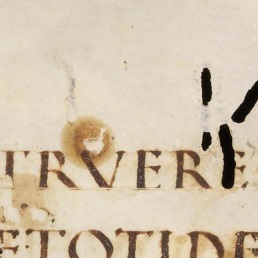 TRVERE
ETOTIDE